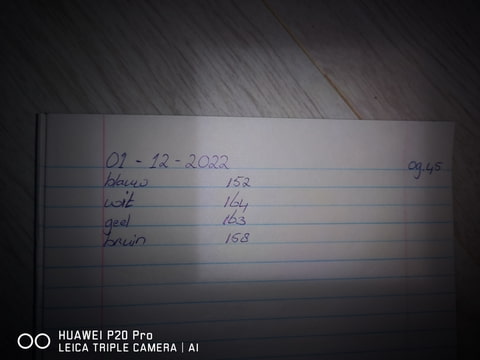 01 - 12 - 2022 09.45
blauw 152
wit 164
geel 163
bruin 158
HUAWEI P20 Pro
LEICA TRIPLE CAMERA | AI